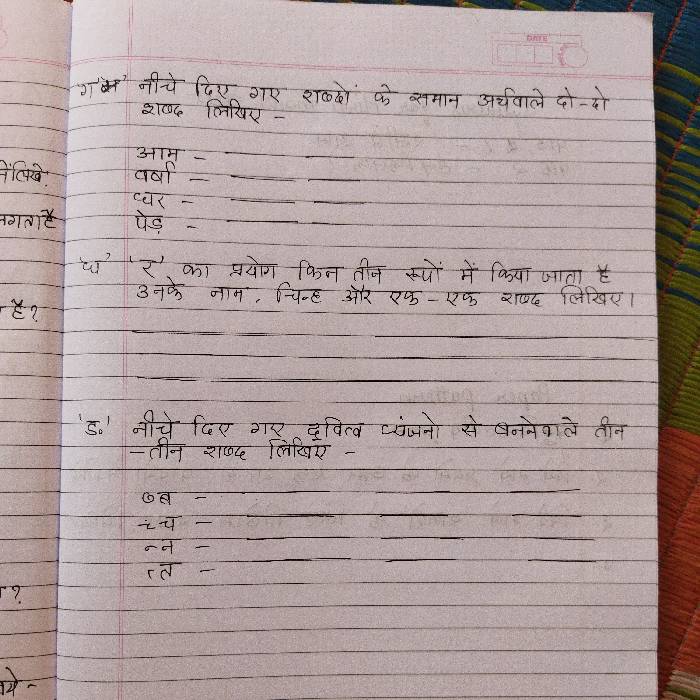 DATE
'ग' नीचे दिए गए शब्दों के समान अर्थवाले दो-दो
शब्द लिखिए -
आम -
वर्षा -
घर -
पेड़ -
'घ' 'र' का प्रयोग किन तीन रूपों में किया जाता है
उनके नाम, चिन्ह और एक-एक शब्द लिखिए।
'ड.' नीचे दिए गए द्वित्व व्यंजनो से बननेवाले तीन
-तीन शब्द लिखिए -
ब्ब -
च्च -
न्न -
त्त -
लिखे.
लगता है
है?
?